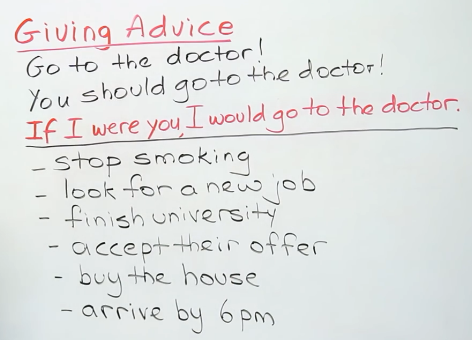 Giving Advice
Go to the doctor!
You should go to the doctor!
If I were you, I would go to the doctor.
- stop smoking
- look for a new job
- finish university
- accept their offer
- buy the house
- arrive by 6pm